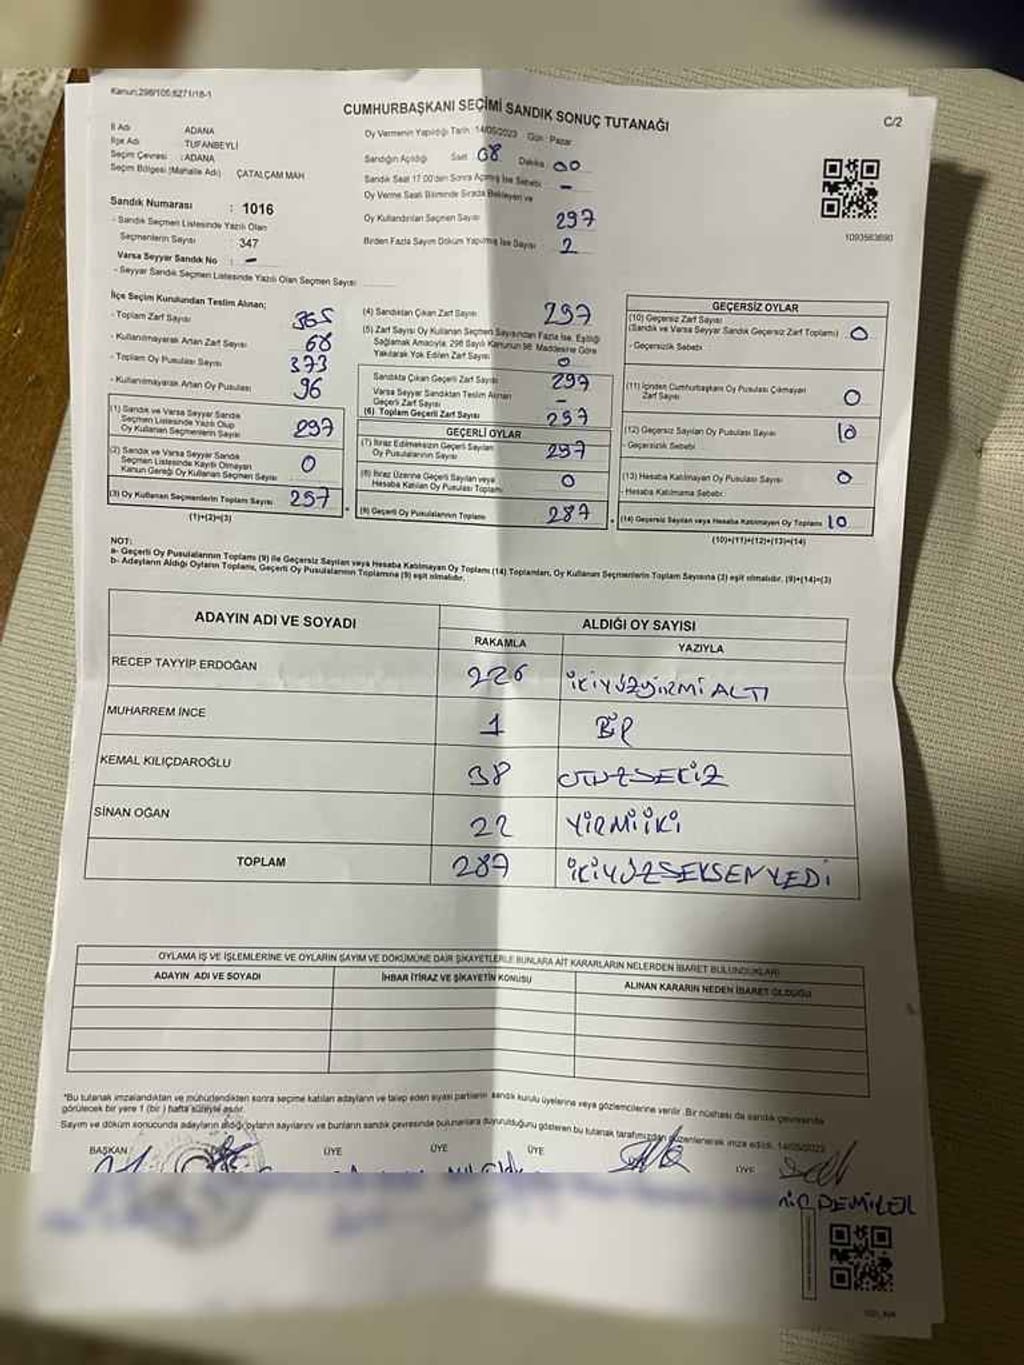 Kanun:298/105;6271/18-1
CUMHURBAŞKANI SEÇİMİ SANDIK SONUÇ TUTANAĞI
C/2
İl Adı ADANA
İlçe Adı TUFANBEYLİ
Seçim Çevresi : ADANA
Seçim Bölgesi (Mahalle Adı) ÇATALÇAM MAH
Oy Vermenin Yapıldığı Tarih : 14/05/2023 Gün : Pazar
Sandığın Açıldığı Saat 08 Dakika 00
Sandık Saat 17:00'den Sonra Açılmış İse Sebebi -
Oy Verme Saati Bitiminde Sırada Bekleyen ve
Oy Kullandırılan Seçmen Sayısı 297
Birden Fazla Sayım Döküm Yapılmış İse Sayısı 2
1093563690
Sandık Numarası : 1016
- Sandık Seçmen Listesinde Yazılı Olan
Seçmenlerin Sayısı 347
Varsa Seyyar Sandık No : -
- Seyyar Sandık Seçmen Listesinde Yazılı Olan Seçmen Sayısı
İlçe Seçim Kurulundan Teslim Alınan;
- Toplam Zarf Sayısı 365
- Kullanılmayarak Artan Zarf Sayısı 68
- Toplam Oy Pusulası Sayısı 373
- Kullanılmayarak Artan Oy Pusulası 96
(1) Sandık ve Varsa Seyyar Sandık
Seçmen Listesinde Yazılı Olup
Oy Kullanan Seçmenlerin Sayısı 297
(2) Sandık ve Varsa Seyyar Sandık
Seçmen Listesinde Kayıtlı Olmayan
Kanun Gereği Oy Kullanan Seçmen Sayısı 0
(3) Oy Kullanan Seçmenlerin Toplam Sayısı 297
(1)+(2)=(3)
(4) Sandıktan Çıkan Zarf Sayısı 297
(5) Zarf Sayısı Oy Kullanan Seçmen Sayısından Fazla İse, Eşitliği
Sağlamak Amacıyla; 298 Sayılı Kanunun 98. Maddesine Göre
Yakılarak Yok Edilen Zarf Sayısı 0
Sandıkta Çıkan Geçerli Zarf Sayısı 297
Varsa Seyyar Sandıktan Teslim Alınan
Geçerli Zarf Sayısı -
(6) Toplam Geçerli Zarf Sayısı 297
GEÇERLİ OYLAR
(7) İtiraz Edilmeksizin Geçerli Sayılan
Oy Pusulalarının Sayısı 297
(8) İtiraz Üzerine Geçerli Sayılan veya
Hesaba Katılan Oy Pusulası Toplamı 0
(9) Geçerli Oy Pusulalarının Toplamı 287
GEÇERSİZ OYLAR
(10) Geçersiz Zarf Sayısı
(Sandık ve Varsa Seyyar Sandık Geçersiz Zarf Toplamı) 0
- Geçersizlik Sebebi
(11) İçinden Cumhurbaşkanı Oy Pusulası Çıkmayan
Zarf Sayısı 0
(12) Geçersiz Sayılan Oy Pusulası Sayısı 10
- Geçersizlik Sebebi
(13) Hesaba Katılmayan Oy Pusulası Sayısı 0
- Hesaba Katılmama Sebebi
(14) Geçersiz Sayılan veya Hesaba Katılmayan Oy Toplamı 10
(10)+(11)+(12)+(13)=(14)
NOT:
a- Geçerli Oy Pusulalarının Toplamı (9) ile Geçersiz Sayılan veya Hesaba Katılmayan Oy Toplamı (14) Toplamları, Oy Kullanan Seçmenlerin Toplam Sayısına (3) eşit olmalıdır. (9)+(14)=(3)
b- Adayların Aldığı Oyların Toplamı, Geçerli Oy Pusulalarının Toplamına (9) eşit olmalıdır.
ADAYIN ADI VE SOYADI ALDIĞI OY SAYISI
RAKAMLA YAZIYLA
RECEP TAYYİP ERDOĞAN 226 İKİYÜZYİRMİ ALTI
MUHARREM İNCE 1 BİR
KEMAL KILIÇDAROĞLU 38 OTUZSEKİZ
SİNAN OĞAN 22 YİRMİİKİ
TOPLAM 287 İKİYÜZSEKSENYEDİ
OYLAMA İŞ VE İŞLEMLERİNE VE OYLARIN SAYIM VE DÖKÜMÜNE DAİR ŞİKAYETLERLE BUNLARA AİT KARARLARIN NELERDEN İBARET BULUNDUKLARI
ADAYIN ADI VE SOYADI İHBAR İTİRAZ VE ŞİKAYETİN KONUSU ALINAN KARARIN NEDEN İBARET OLDUĞU
*Bu tutanak imzalandıktan ve mühürlendikten sonra seçime katılan adayların ve talep eden siyasi partilerin sandık kurulu üyelerine veya gözlemcilerine verilir. Bir nüshası da sandık çevresinde
görülecek bir yere 1 (bir) hafta süreyle asılır.
Sayım ve döküm sonucunda adayların aldığı oyların sayılarını ve bunların sandık çevresinde bulunanlara duyurulduğunu gösteren bu tutanak tarafımızdan düzenlenerek imza edildi. 14/05/2023
BAŞKAN ÜYE ÜYE ÜYE ÜYE
DEMİREL